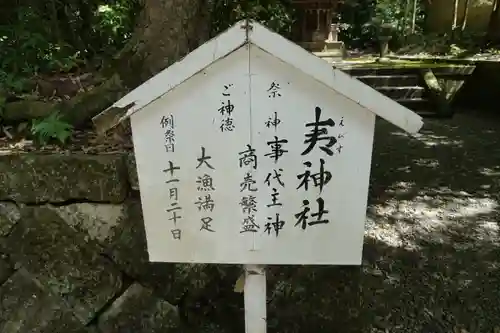 えびす
夷神社
祭神 事代主神
ご神徳 商売繁盛
大漁満足
例祭日 十一月二十日